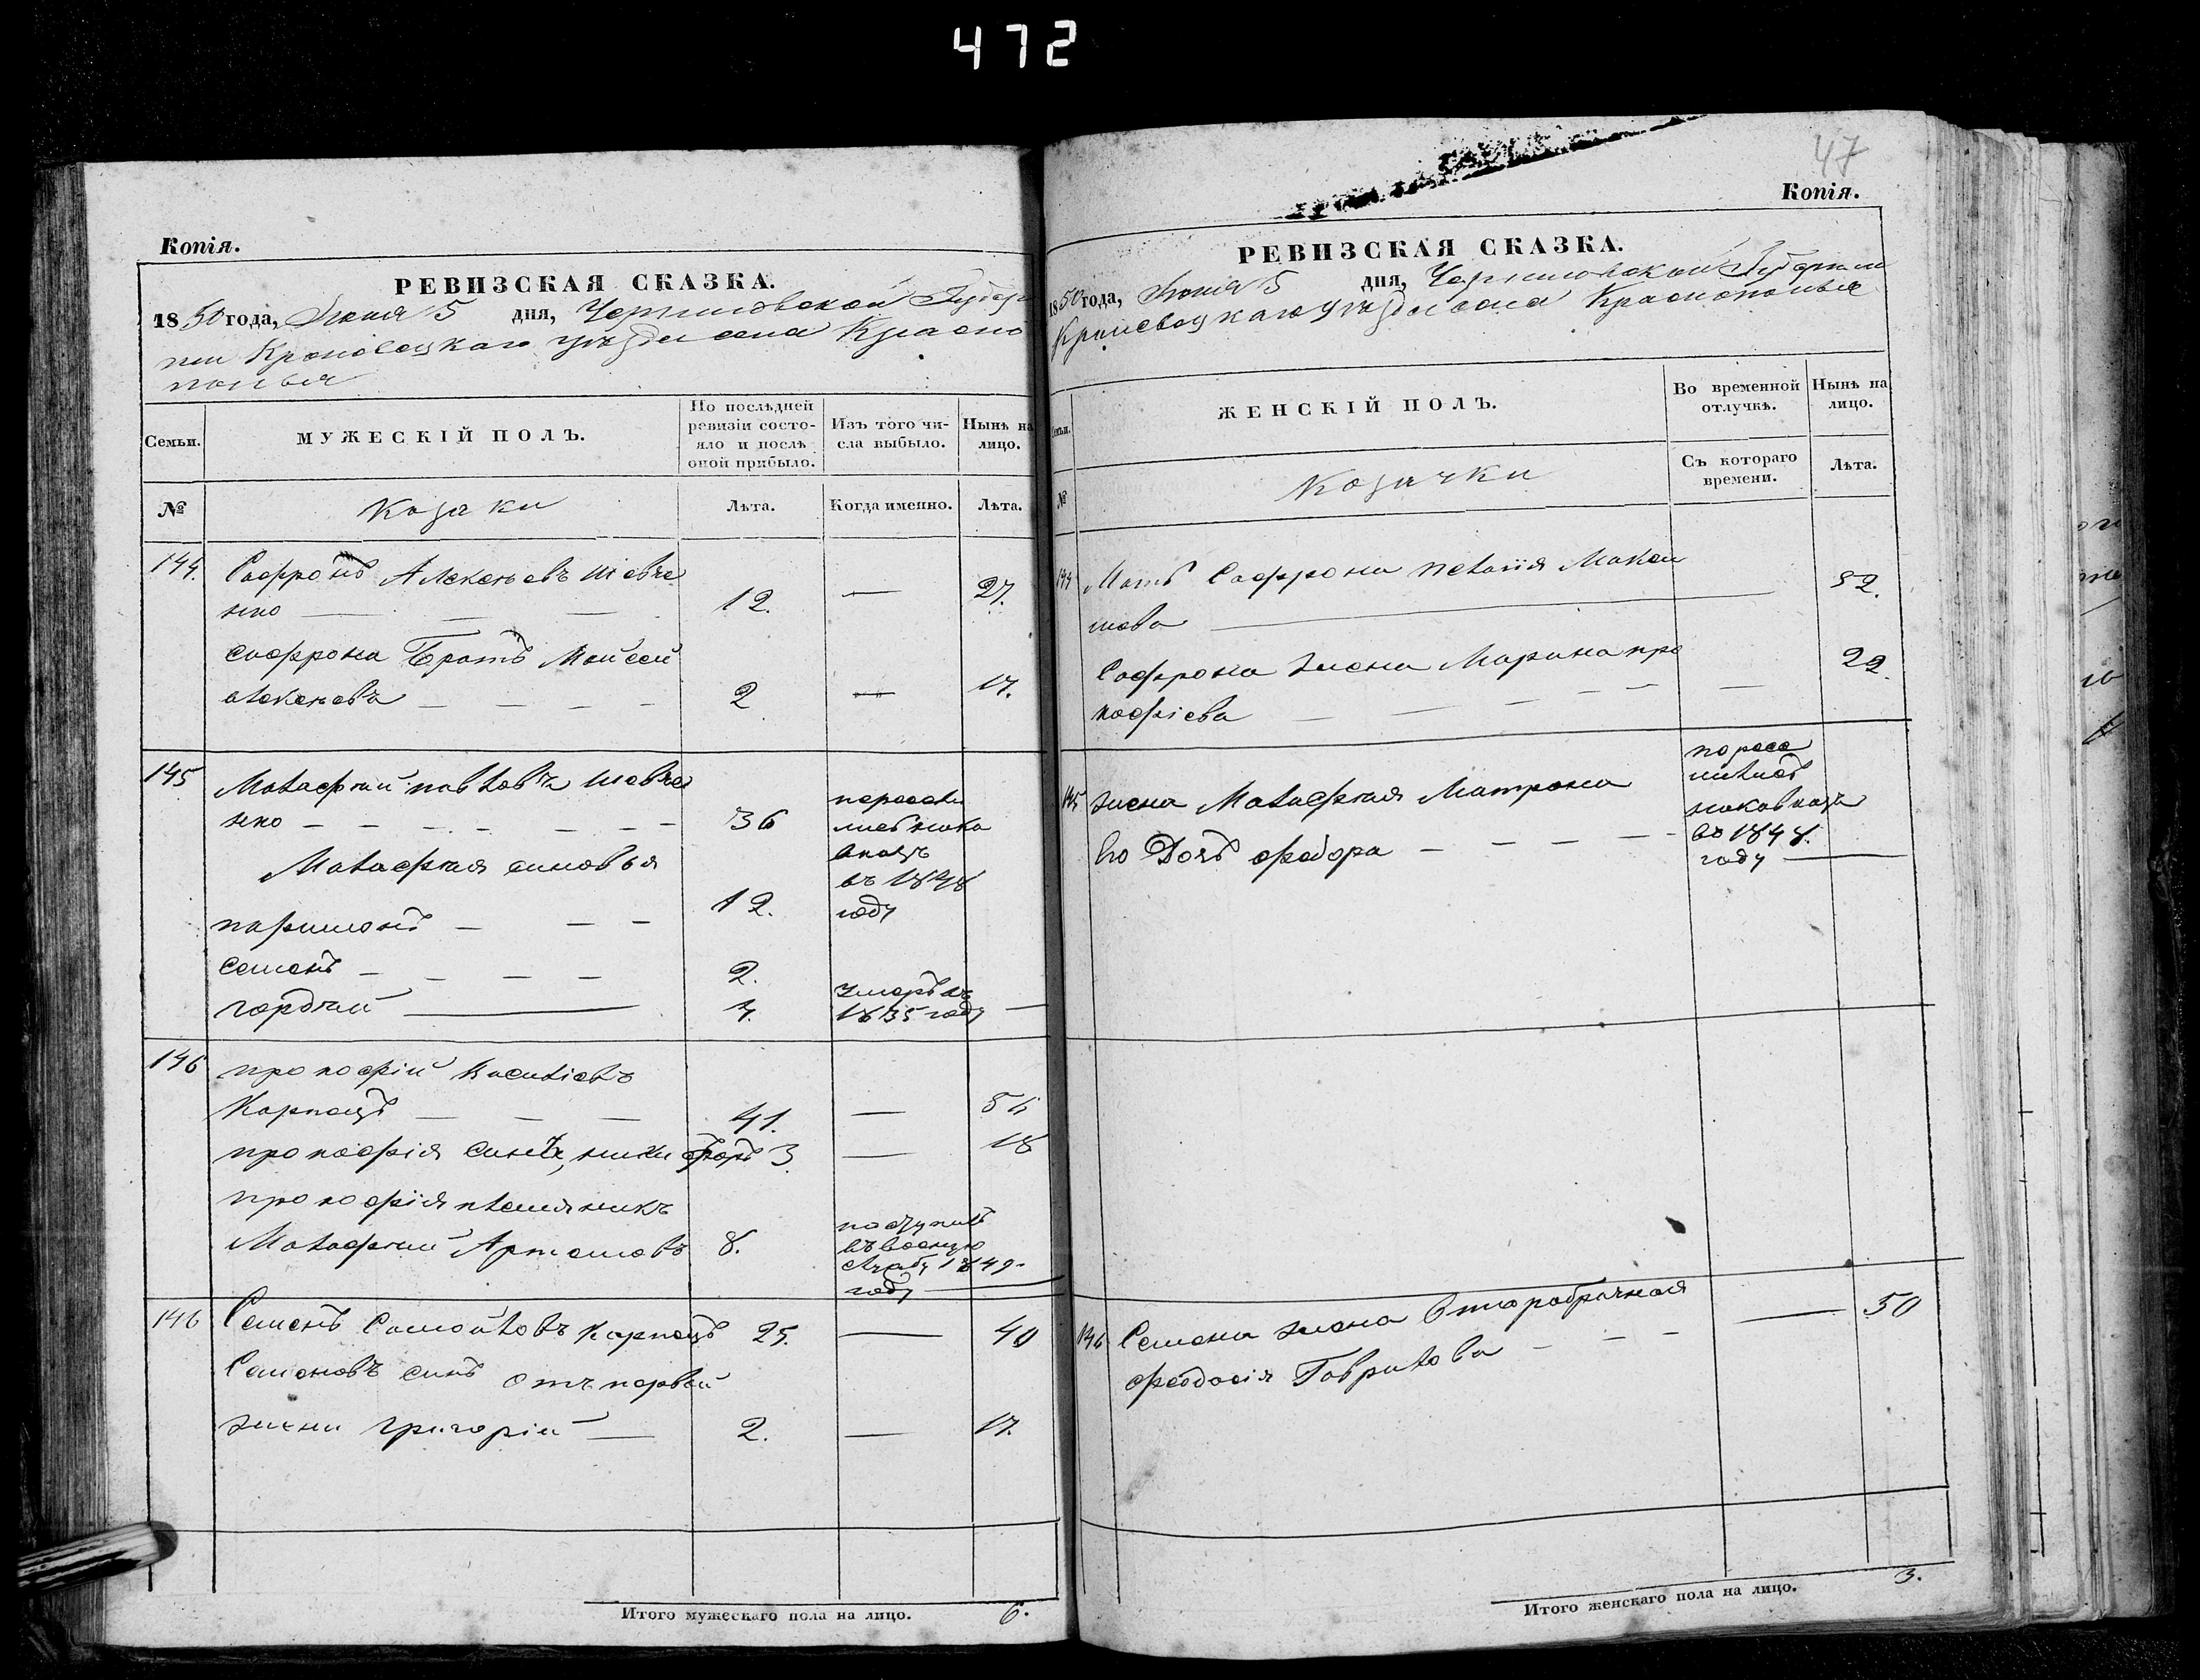 472
Копія.
РЕВИЗСКАЯ СКАЗКА.
1850 года, Июня 5 дня, Черниговской Губер
ніи Кролевецкаго уѣзда села Красно
полья
Семьи.
МУЖЕСКІЙ ПОЛЪ.
По послѣдней ревизіи состояло и послѣ оной прибыло.
Изъ того числа выбыло.
Нынѣ на лицо.
№
Козаки
Лѣта.
Когда именно.
Лѣта.
144. Софронъ Алексѣевъ Шевче
нко 12. — 27.
Софрона Братъ Моисей
алексѣевъ 2 — 17.
145 Малафтай павловъ Шевче
нко 36
пересели
лисъ
въ 1848
году
Малафтая синовья
паримонъ 12.
Семенъ 2.
гордѣй 4.
умеръ въ
1835 году
146 прокофій Василіевъ
Карпецъ 41. — 56
прокофія синъ, никифоръ 3. — 18
прокофія племянникъ
Малафтай Артемовъ 8.
поступилъ
въ военную
службу 1849
году
146 Семенъ Самойловъ Карпецъ 25. — 40
Семеновъ синъ отъ первой
жени григорій 2. — 17.
Итого мужескаго пола на лицо. 6.
47
Копія.
РЕВИЗСКАЯ СКАЗКА.
1850 года, Июня 5 дня, Черниговской Губерніи
Кролевецкаго Уѣзда села Краснополья
Семьи.
ЖЕНСКІЙ ПОЛЪ.
Во временной отлучкѣ.
Нынѣ на лицо.
№
Козачки
Съ котораго времени.
Лѣта.
144 Мать Софрона пелагія Макси
мова 52.
Софрона жена Марина про
кофіева — 22.
145 жена Малафтая Матрона
Его Дочь федора
въ 1848.
году
146 Семена жена Второбрачная
феодосія Гаврилова — 50
Итого женскаго пола на лицо. 3.